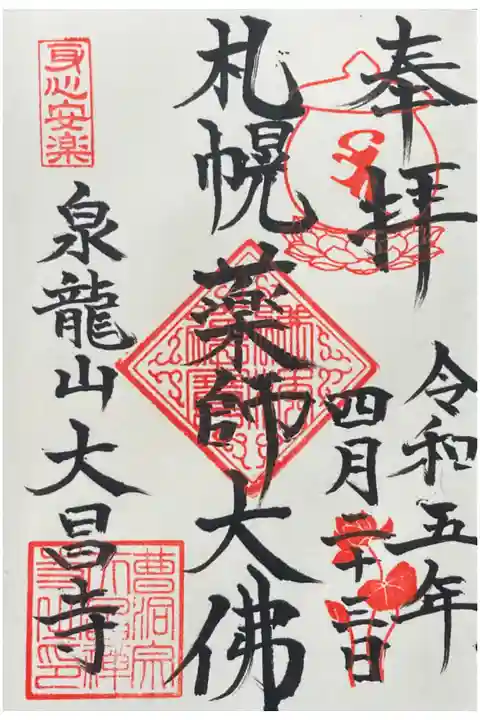 奉拝
令和五年
四月二十三日
札幌薬師大佛
身心安楽
泉龍山大昌寺
曹洞宗